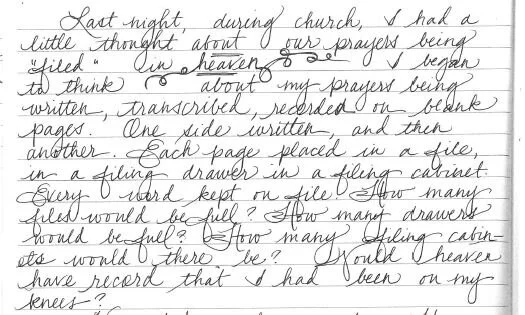 Last night, during church, I had a
little thought about our prayers being
"filed" in heaven. I began
to think about my prayers being
written, transcribed, recorded on blank
pages. One side written, and then
another. Each page placed in a file,
in a filing drawer in a filing cabinet.
Every word kept on file. How many
files would be full? How many drawers
would be full? How many filing cabin-
ets would there be? Would heaven
have record that I had been on my
knees?